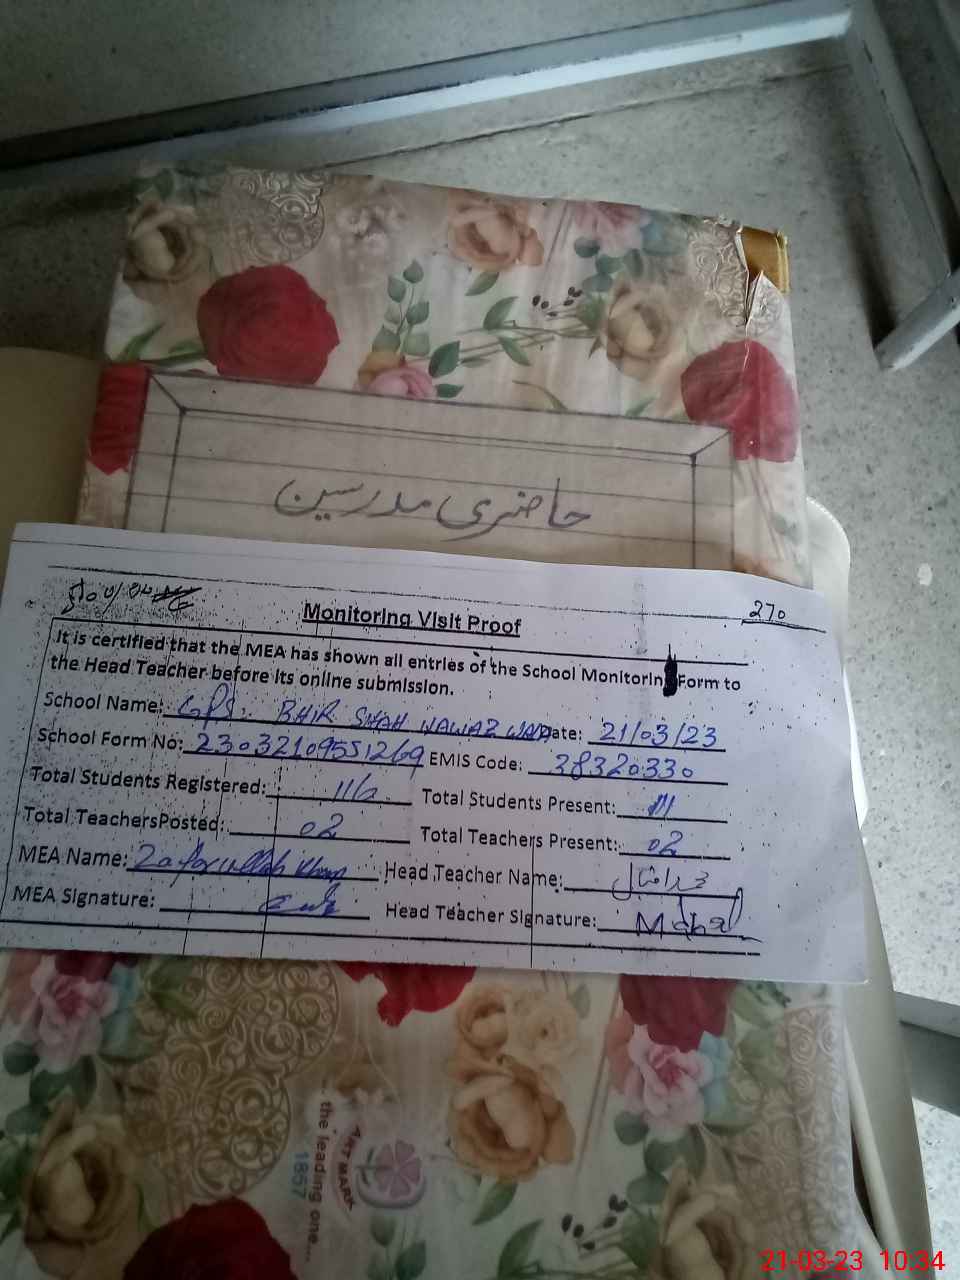 حاضری مدرسین
270
Monitoring Visit Proof
It is certified that the MEA has shown all entries of the School Monitoring Form to
the Head Teacher before its online submission.
School Name: GPS. BHIR SHAH NAWAZ Date: 21/03/23
School Form No: 23032109551269 EMIS Code: 38320330
Total Students Registered: 116 Total Students Present: 111
Total TeachersPosted: 02 Total Teachers Present: 02
MEA Name: Zafarullah Khan Head Teacher Name:
MEA Signature: Head Teacher Signature:
ART MARK
the leading one...
1857
21-03-23 10:34